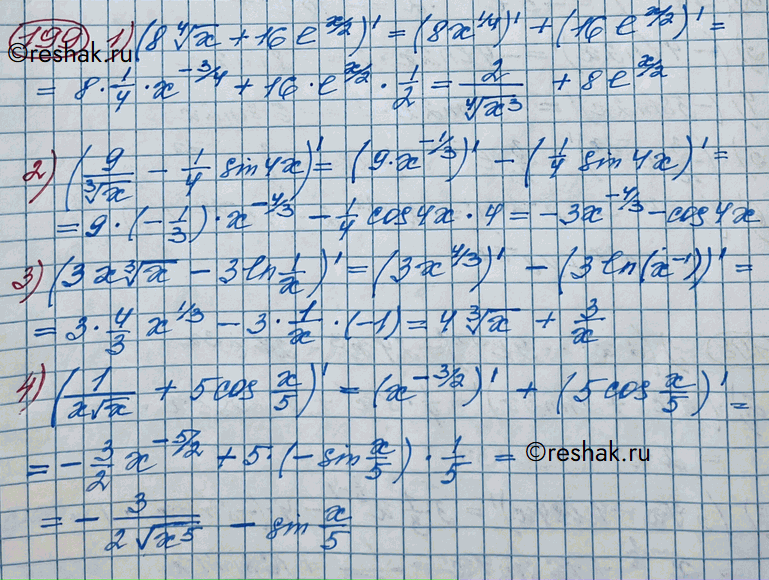 ©reshak.ru
199 1) (8∜x + 16 e^(x/2))' = (8x^(1/4))' + (16 e^(x/2))' =
= 8 · 1/4 · x^(-3/4) + 16 · e^(x/2) · 1/2 = 2/∜(x³) + 8 e^(x/2)
2) (9/∛x - 1/4 sin 4x)' = (9 · x^(-1/3))' - (1/4 sin 4x)' =
= 9 · (-1/3) · x^(-4/3) - 1/4 cos 4x · 4 = -3x^(-4/3) - cos 4x
3) (3x∛x - 3 ln 1/x)' = (3x^(4/3))' - (3 ln(x^(-1)))' =
= 3 · 4/3 x^(1/3) - 3 · 1/x · (-1) = 4∛x + 3/x
4) (1/(x√x) + 5 cos x/5)' = (x^(-3/2))' + (5 cos x/5)' =
= -3/2 x^(-5/2) + 5 · (-sin x/5) · 1/5 =
©reshak.ru
= - 3/(2√(x⁵)) - sin x/5